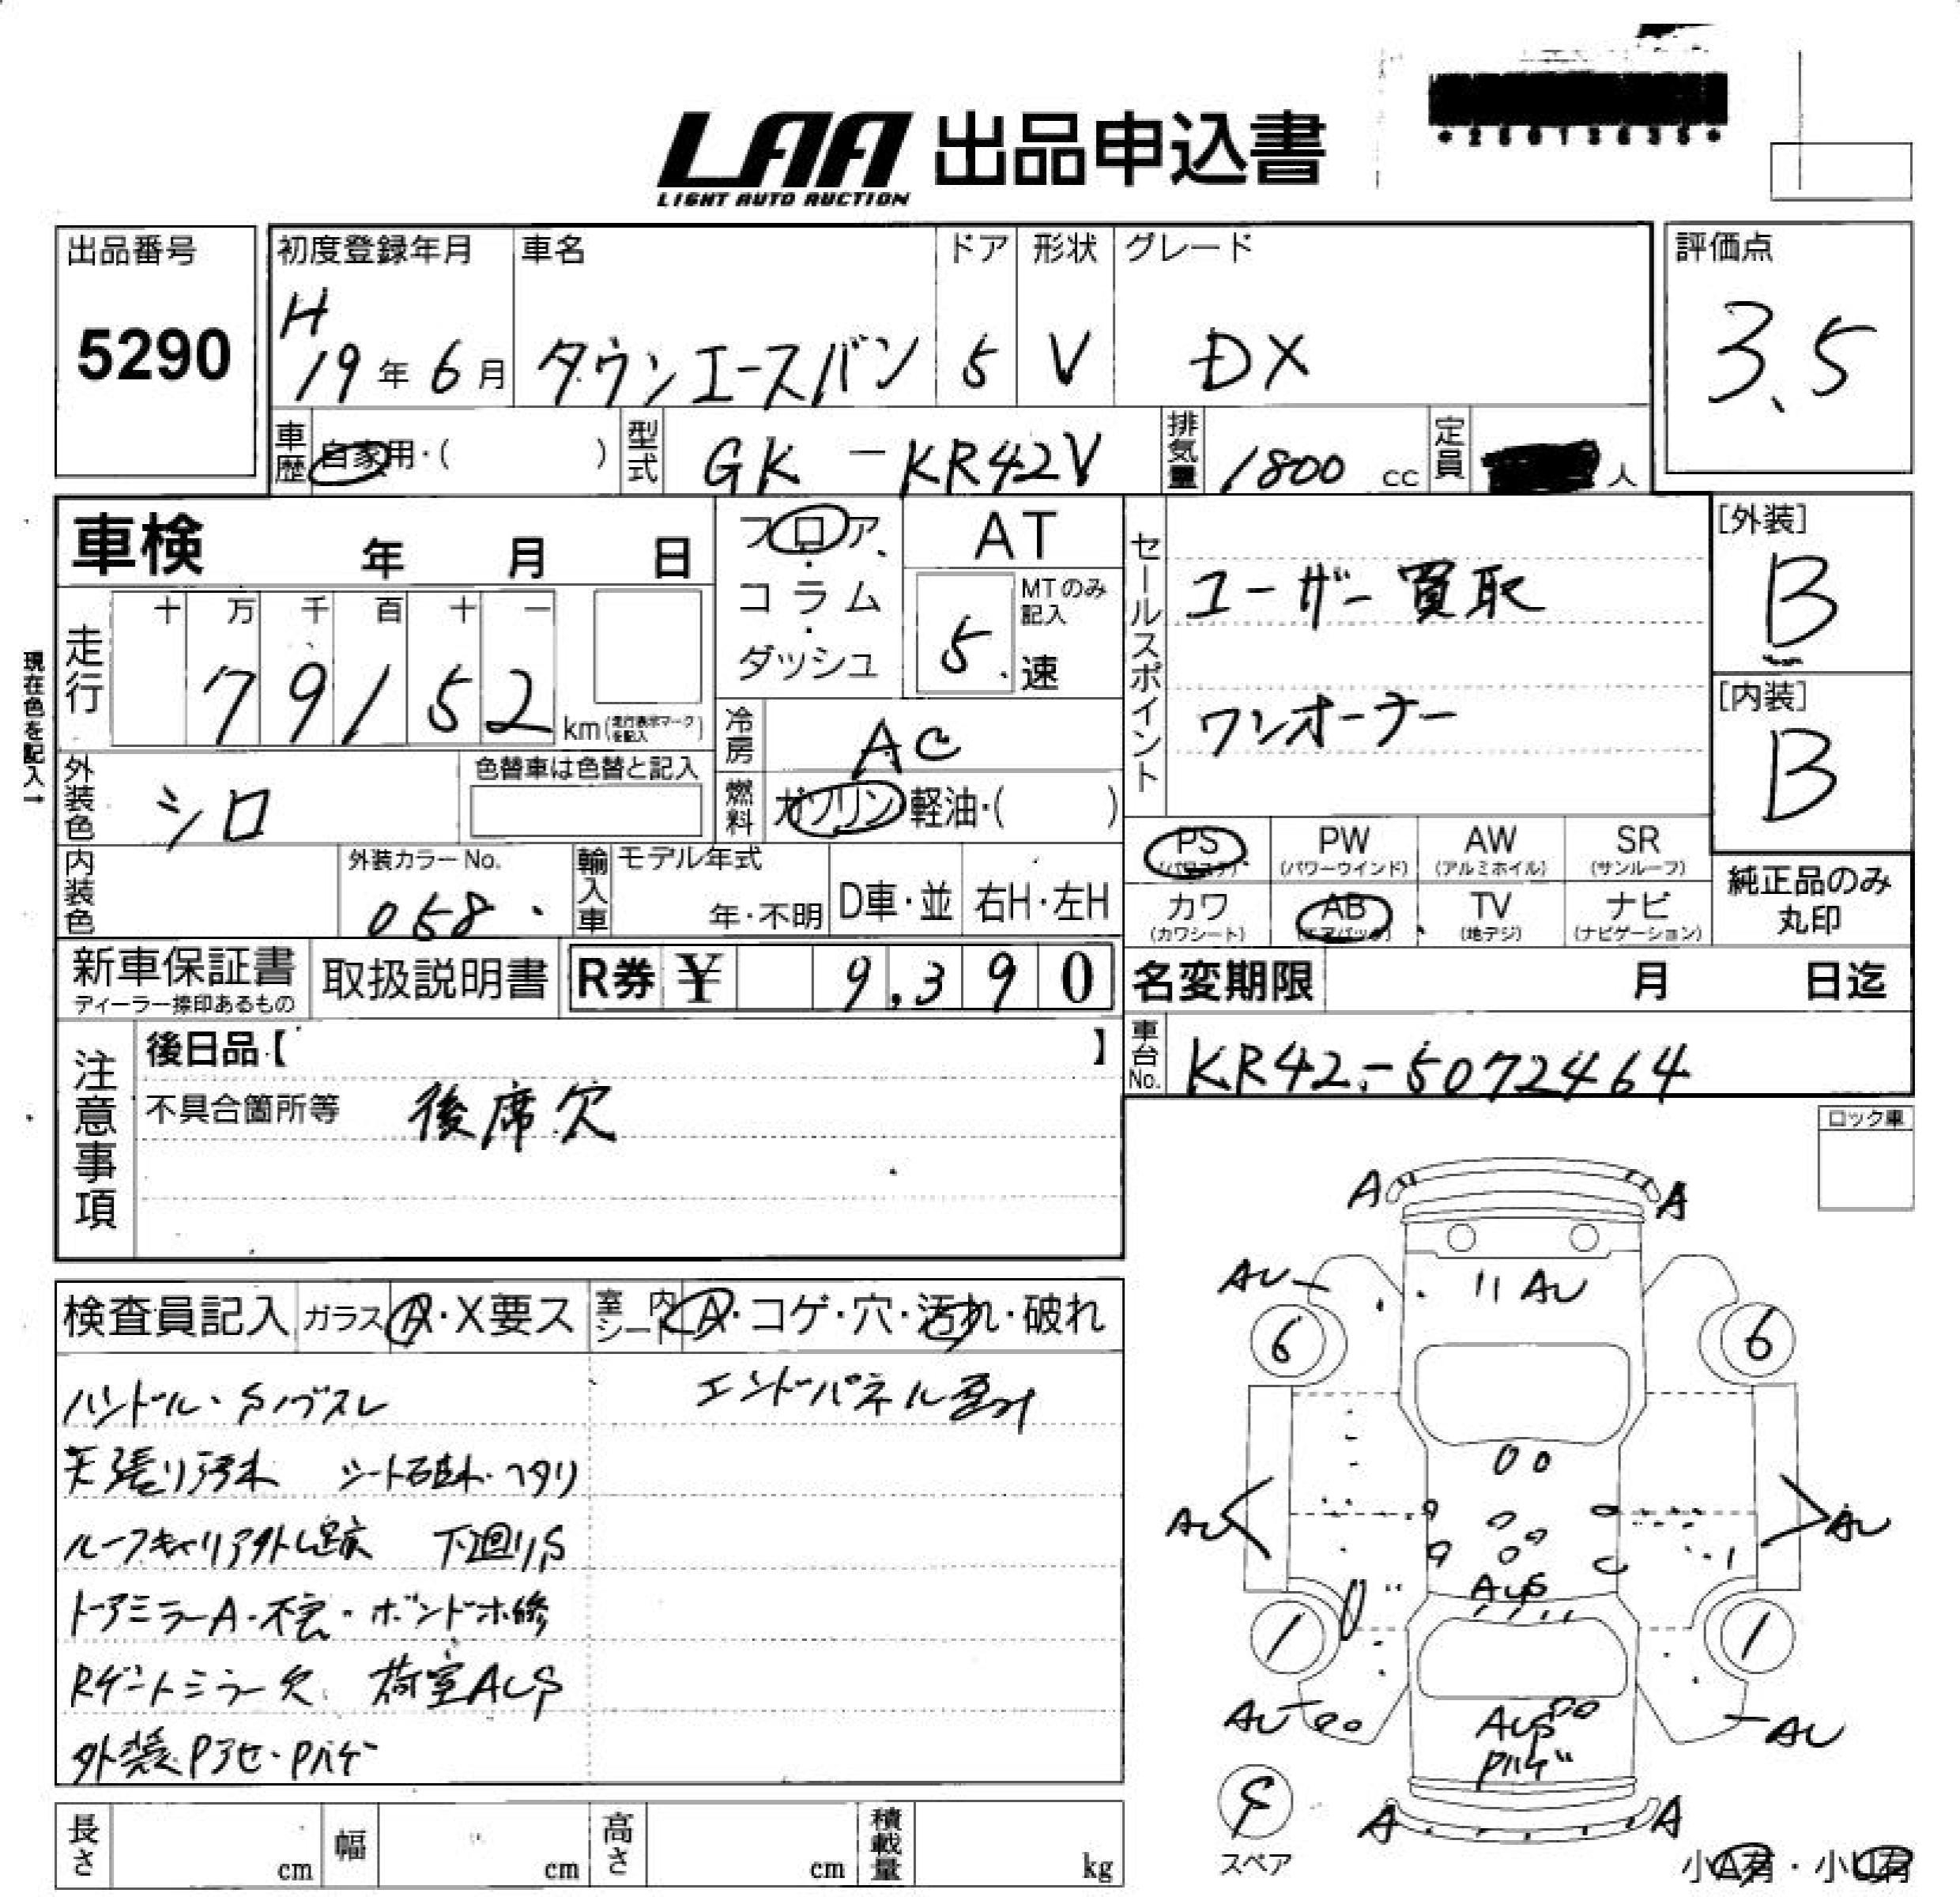 *25013635*
LAA 出品申込書
LIGHT AUTO AUCTION
出品番号
5290
初度登録年月
H
19年6月
車名
タウンエースバン
ドア
5
形状
V
グレード
DX
評価点
3.5
車歴
自家用・( )
型式
GK-KR42V
排気量
1800 cc
定員
人
車検 年 月 日
現在色を記入→
走行
十 万 千 百 十 一
79152
km(走行表示マークを記入)
フロア・コラム・ダッシュ
AT
MTのみ記入
5速
冷房
AC
燃料
ガソリン・軽油・( )
外装色
シロ
色替車は色替と記入
内装色
外装カラーNo.
058
輸入車
モデル年式
年・不明
D車・並
右H・左H
新車保証書
ディーラー捺印あるもの
取扱説明書
R券 ¥ 9,390
セールスポイント
ユーザー買取
ワンオーナー
[外装]
B
[内装]
B
PS PW AW SR
(パワステ) (パワーウインド) (アルミホイル) (サンルーフ)
カワ AB TV ナビ
(カワシート) (エアバック) (地デジ) (ナビゲーション)
純正品のみ
丸印
名変期限 月 日迄
車台No.
KR42-5072464
注意事項
後日品【 】
不具合箇所等 後席欠
ロック車
検査員記入 ガラス A・X要ス 室内シート A・コゲ・穴・汚れ・破れ
ハンドル・Sノブスレ
エンドパネル歪み
天張り汚れ シート破れ・ヘタリ
ルーフキャリア外し跡 下廻りS
ドアミラーA・不良・ボンド補修
Rゲートミラー欠 荷室AUS
外装Pアセ・Pハゲ
A A
AU AU
6 6
AU AU
AUS
1 1
AU AUS AU
Pハゲ
A A
スペア
小A有・小U有
長さ cm
幅 cm
高さ cm
積載量 kg